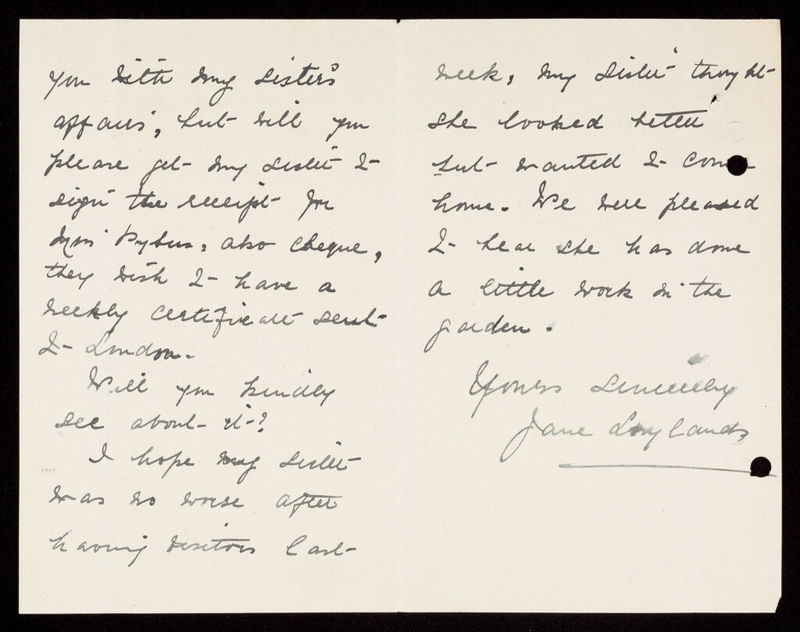 you with my sister's
affairs, but will you
please get my sister to
sign the receipt for
Miss Pybus, also cheque,
they wish to have a
weekly certificate sent
to London.
Will you kindly
see about it?
I hope my sister
was no worse after
having visitors last
week, my sister thought
she looked better
but wanted to come
home. We were pleased
to hear she has done
a little work in the
garden.
Yours sincerely
Jane